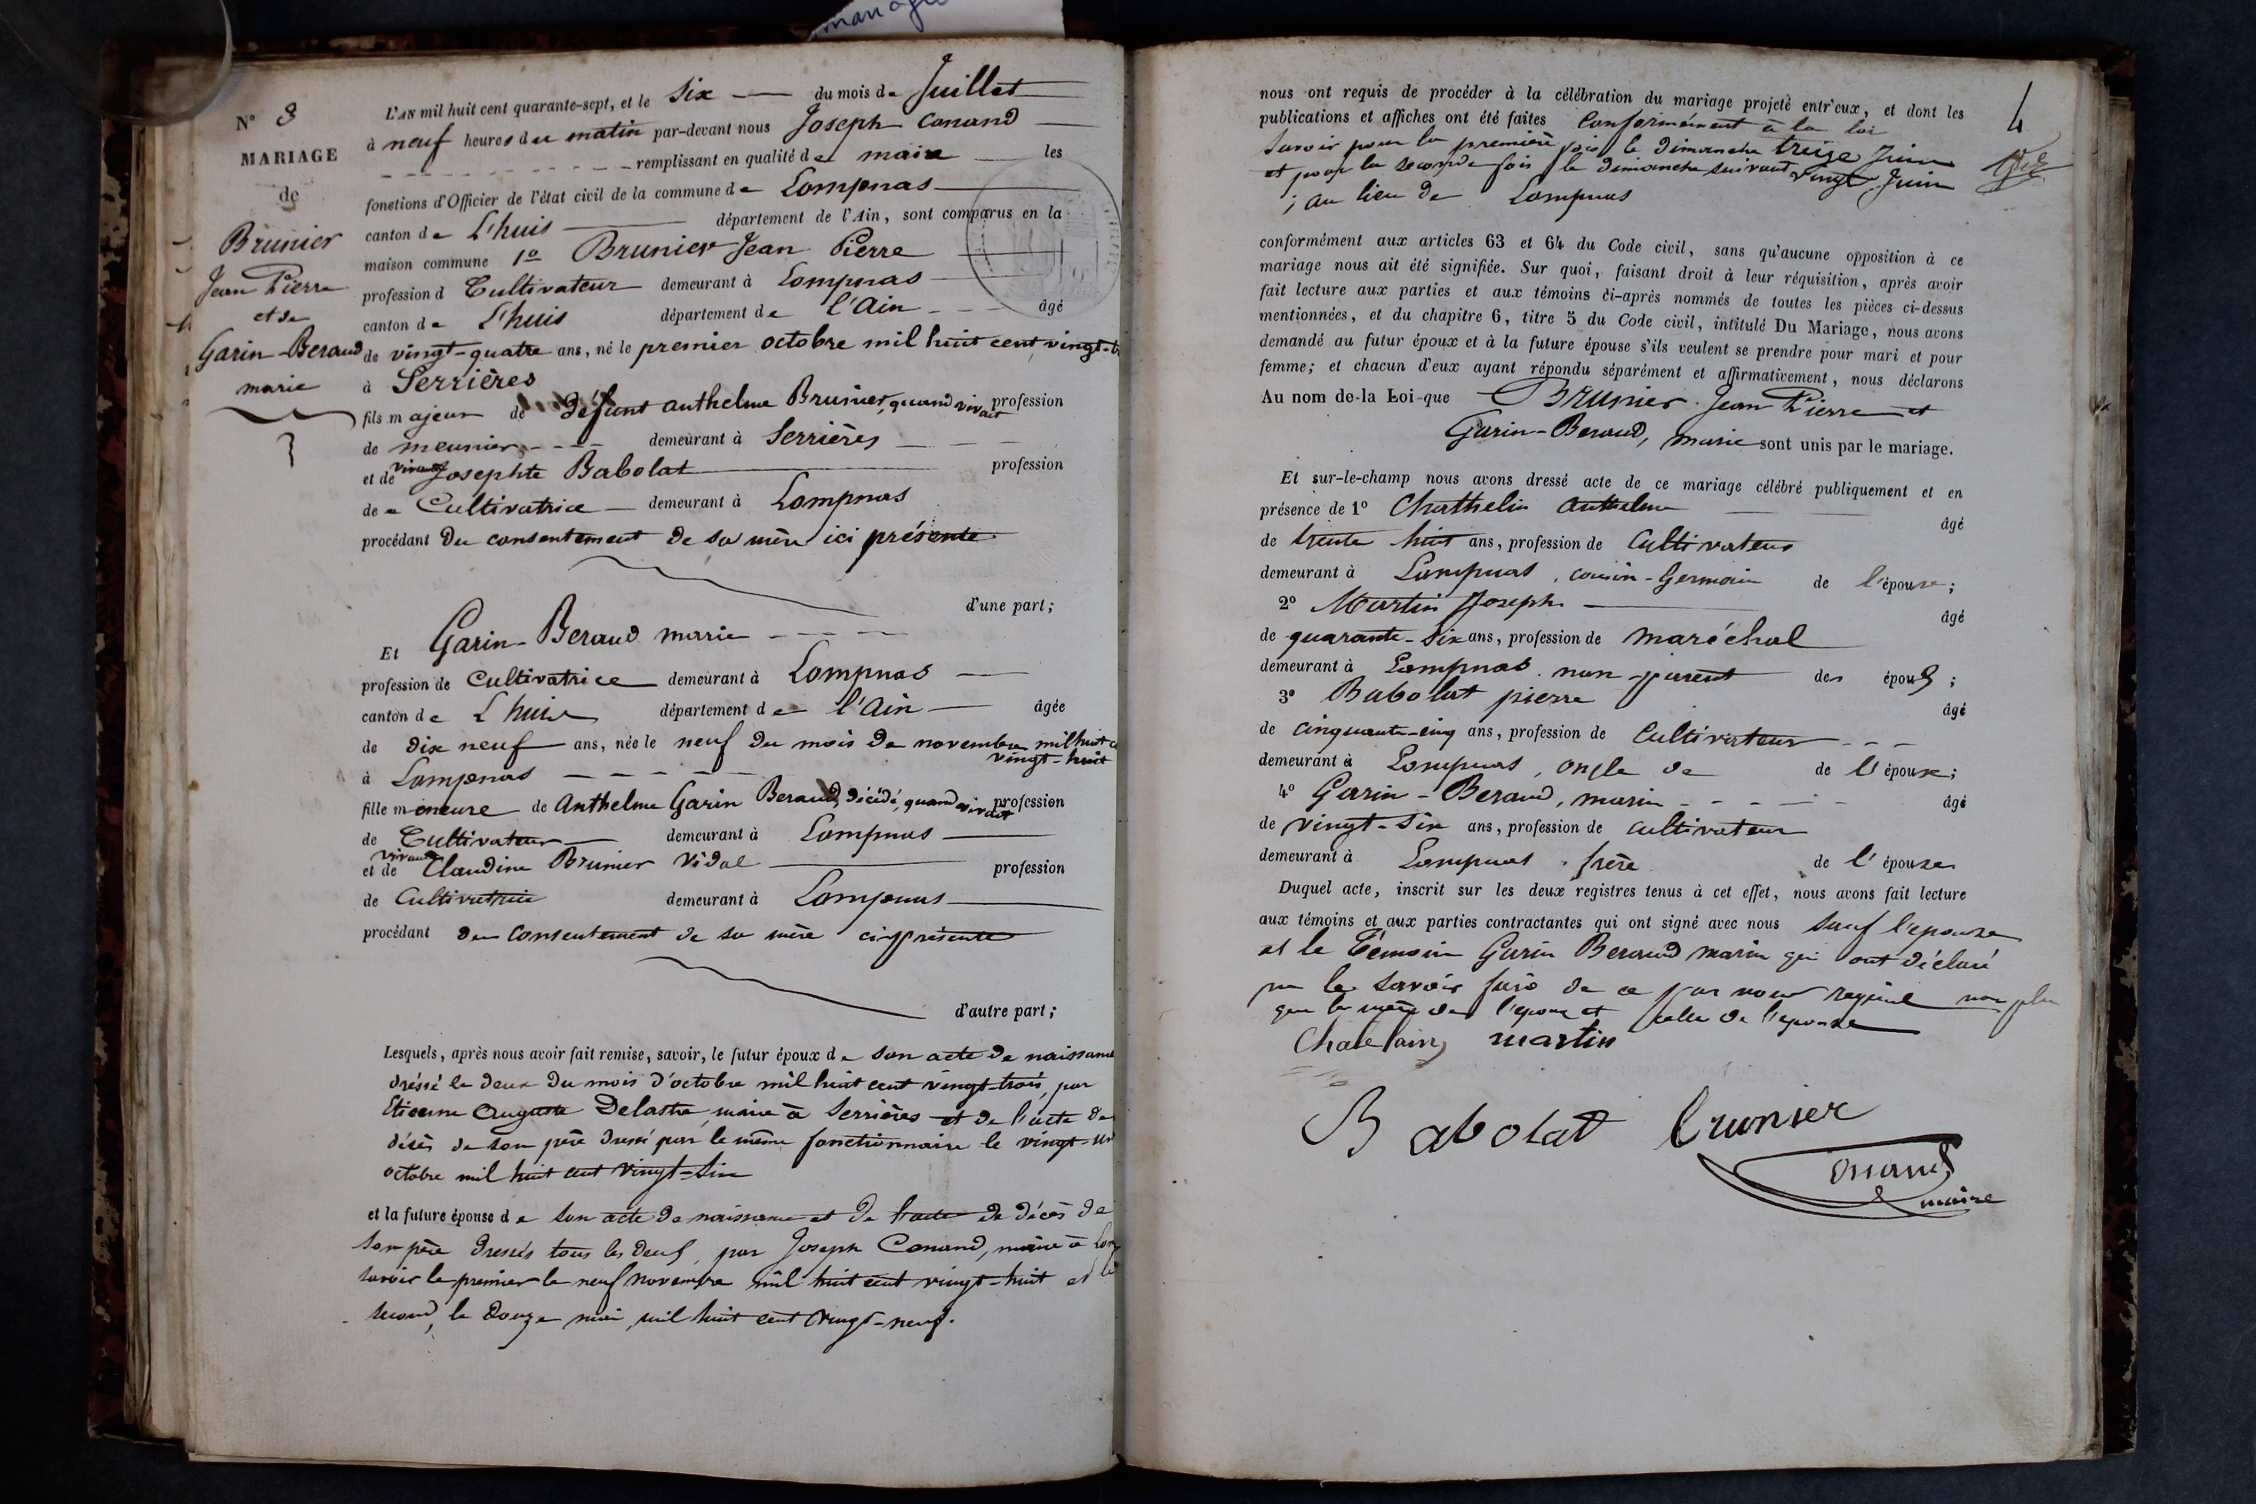 mariage
N° 3
MARIAGE
de
Brunier
Jean Pierre
et de
Garin-Beraud
marie
L'AN mil huit cent quarante-sept, et le six du mois de Juillet
à neuf heures du matin par-devant nous Joseph Conand
remplissant en qualité de maire les
fonctions d'Officier de l'état civil de la commune de Lompnas
canton de L'huis département de l'Ain, sont comparus en la
maison commune 1° Brunier Jean Pierre
profession d Cultivateur demeurant à Lompnas
canton de L'huis département de l'Ain âgé
de vingt-quatre ans, né le premier octobre mil huit cent vingt-t
à Serrières
fils majeur de défunt anthelme Brunier, quand vivait profession
de meunier demeurant à Serrières
et de vivante Josephte Babolat profession
de Cultivatrice demeurant à Lompnas
procédant du consentement de sa mère ici présente
d'une part;
Et Garin-Beraud marie
profession de Cultivatrice demeurant à Lompnas
canton de L'huis département de l'Ain âgée
de dix neuf ans, née le neuf du mois de novembre mil huit c
vingt-huit
à Lompnas
fille mineure de Anthelme Garin Beraud, décédé, quand vivait profession
de Cultivateur demeurant à Lompnas
et de vivante Claudine Brunier Vidal profession
de Cultivatrice demeurant à Lompnas
procédant du consentement de sa mère ci présente
d'autre part;
Lesquels, après nous avoir fait remise, savoir, le futur époux de son acte de naissance
dréssé le deux du mois d'octobre mil huit cent vingt-trois, par
Etienne Auguste Delastre maire à Serrières et de l'acte de
décès de son père dressé par le même fonctionnaire le vingt-un
octobre mil huit cent vingt-six
et la future épouse de son acte de naissance et de l'acte de décès de
son père dressés tous les deux, par Joseph Conand, maire à Lom
savoir le premier le neuf novembre mil huit cent vingt-huit et le
second, le douze mai mil huit cent vingt-neuf.
4
nous ont requis de procéder à la célébration du mariage projeté entr'eux, et dont les
publications et affiches ont été faites conformément à la loi
savoir pour la première fois le dimanche treize Juin
et pour la seconde fois le dimanche suivant vingt Juin
; au lieu de Lompnas
conformément aux articles 63 et 64 du Code civil, sans qu'aucune opposition à ce
mariage nous ait été signifiée. Sur quoi, faisant droit à leur réquisition, après avoir
fait lecture aux parties et aux témoins ci-après nommés de toutes les pièces ci-dessus
mentionnées, et du chapitre 6, titre 5 du Code civil, intitulé Du Mariage, nous avons
demandé au futur époux et à la future épouse s'ils veulent se prendre pour mari et pour
femme; et chacun d'eux ayant répondu séparément et affirmativement, nous déclarons
Au nom de la Loi que Brunier Jean Pierre et
Garin-Beraud, marie sont unis par le mariage.
Et sur-le-champ nous avons dressé acte de ce mariage célébré publiquement et en
présence de 1° Chathelin Anthelme âgé
de trente huit ans, profession de Cultivateur
demeurant à Lompnas, cousin-Germain de l'épouse;
2° Martin Joseph âgé
de quarante-six ans, profession de maréchal
demeurant à Lompnas non parent des époux;
3° Babolat pierre âgé
de cinquante-cinq ans, profession de Cultivateur
demeurant à Lompnas, oncle de de l'épouse;
4° Garin-Beraud, marin âgé
de vingt-six ans, profession de cultivateur
demeurant à Lompnas, frère de l'épouse
Duquel acte, inscrit sur les deux registres tenus à cet effet, nous avons fait lecture
aux témoins et aux parties contractantes qui ont signé avec nous sauf l'épouse
et le Témoin Garin Beraud marin qui ont déclaré
ne le savoir faire de ce par nous requis non plus
que la mère de l'époux et celle de l'épouse
Chatelain martin
Babolat brunier
Conand
maire